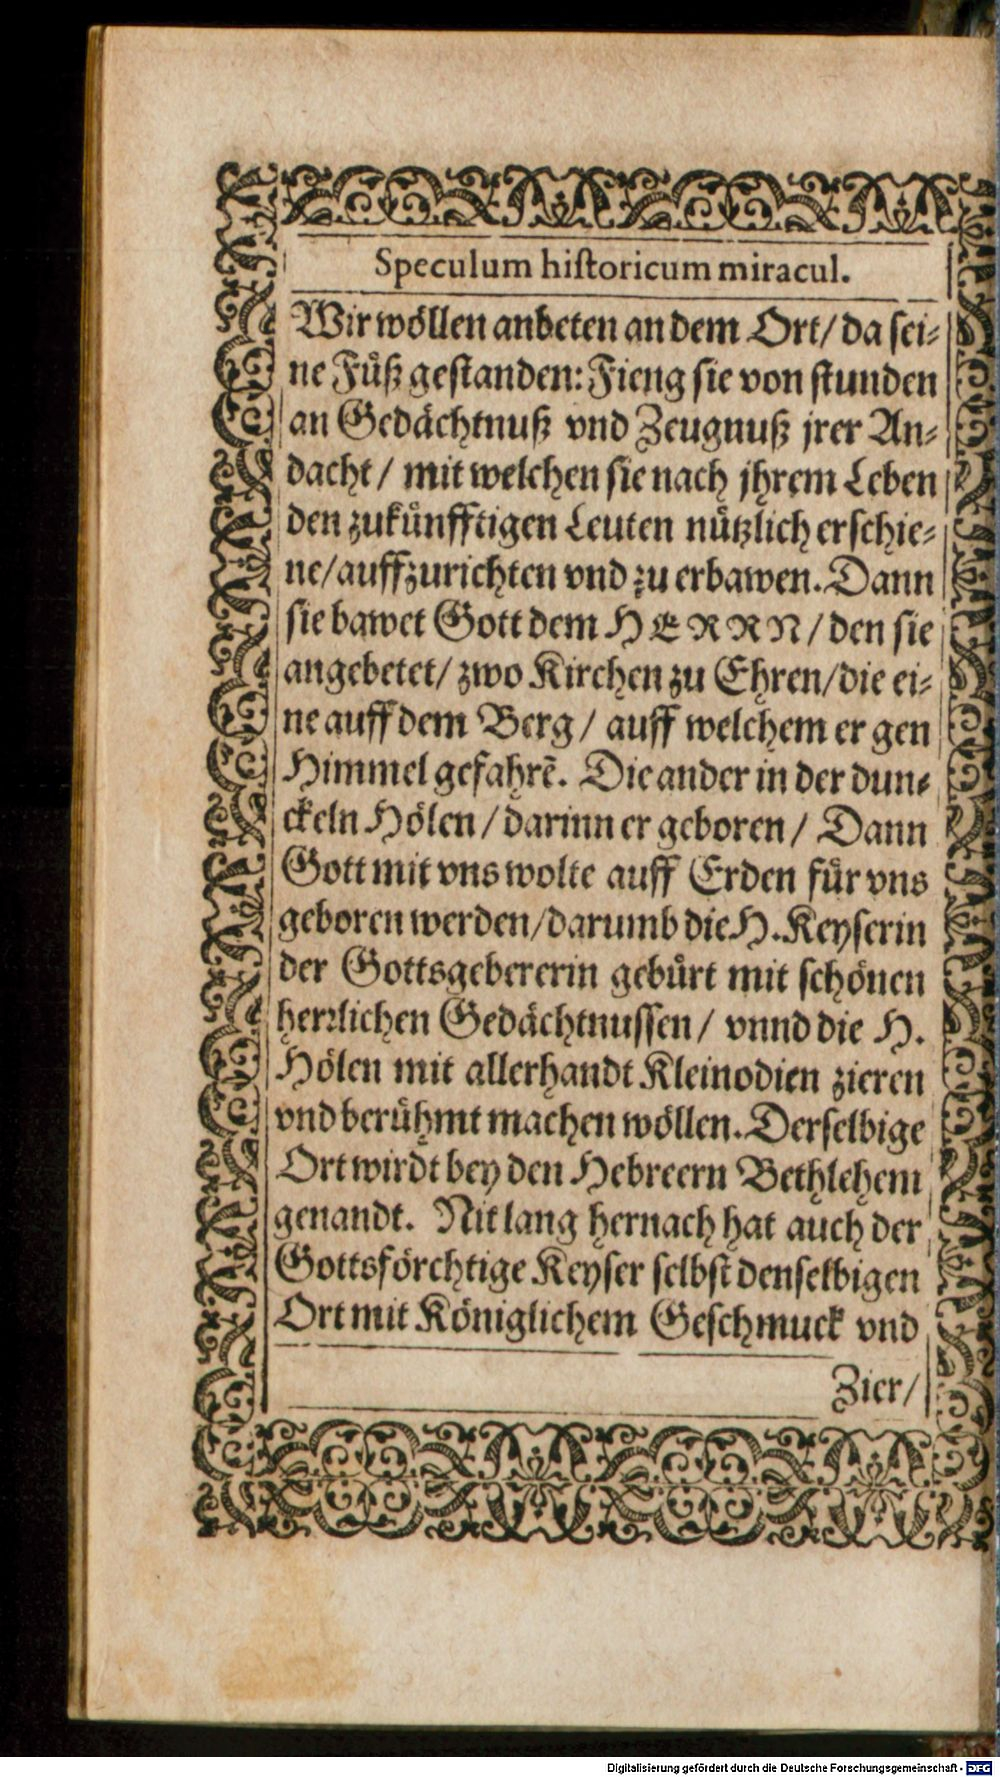 Speculum historicum miracul.
Wir wöllen anbeten an dem Ort/ da sei-
ne Füß gestanden: Fieng sie von stunden
an Gedächtnuß vnd Zeugnuß jrer An-
dacht/ mit welchen sie nach jhrem Leben
den zukünfftigen Leuten nützlich erschie-
ne/ auffzurichten vnd zu erbawen. Dann
sie bawet Gott dem HERRN/ den sie
angebetet/ zwo Kirchen zu Ehren/ die ei-
ne auff dem Berg/ auff welchem er gen
Himmel gefahrē. Die ander in der dun-
ckeln Hölen/ darinn er geboren/ Dann
Gott mit vns wolte auff Erden für vns
geboren werden/ darumb die H. Keyserin
der Gottsgebererin gebürt mit schönen
herrlichen Gedächtnussen/ vnnd die H.
Hölen mit allerhandt Kleinodien zieren
vnd berühmt machen wöllen. Derselbige
Ort wirdt bey den Hebreern Bethlehem
genandt. Nit lang hernach hat auch der
Gottsförchtige Keyser selbst denselbigen
Ort mit Königlichem Geschmuck vnd
Zier/
Digitalisierung gefördert durch die Deutsche Forschungsgemeinschaft - DFG